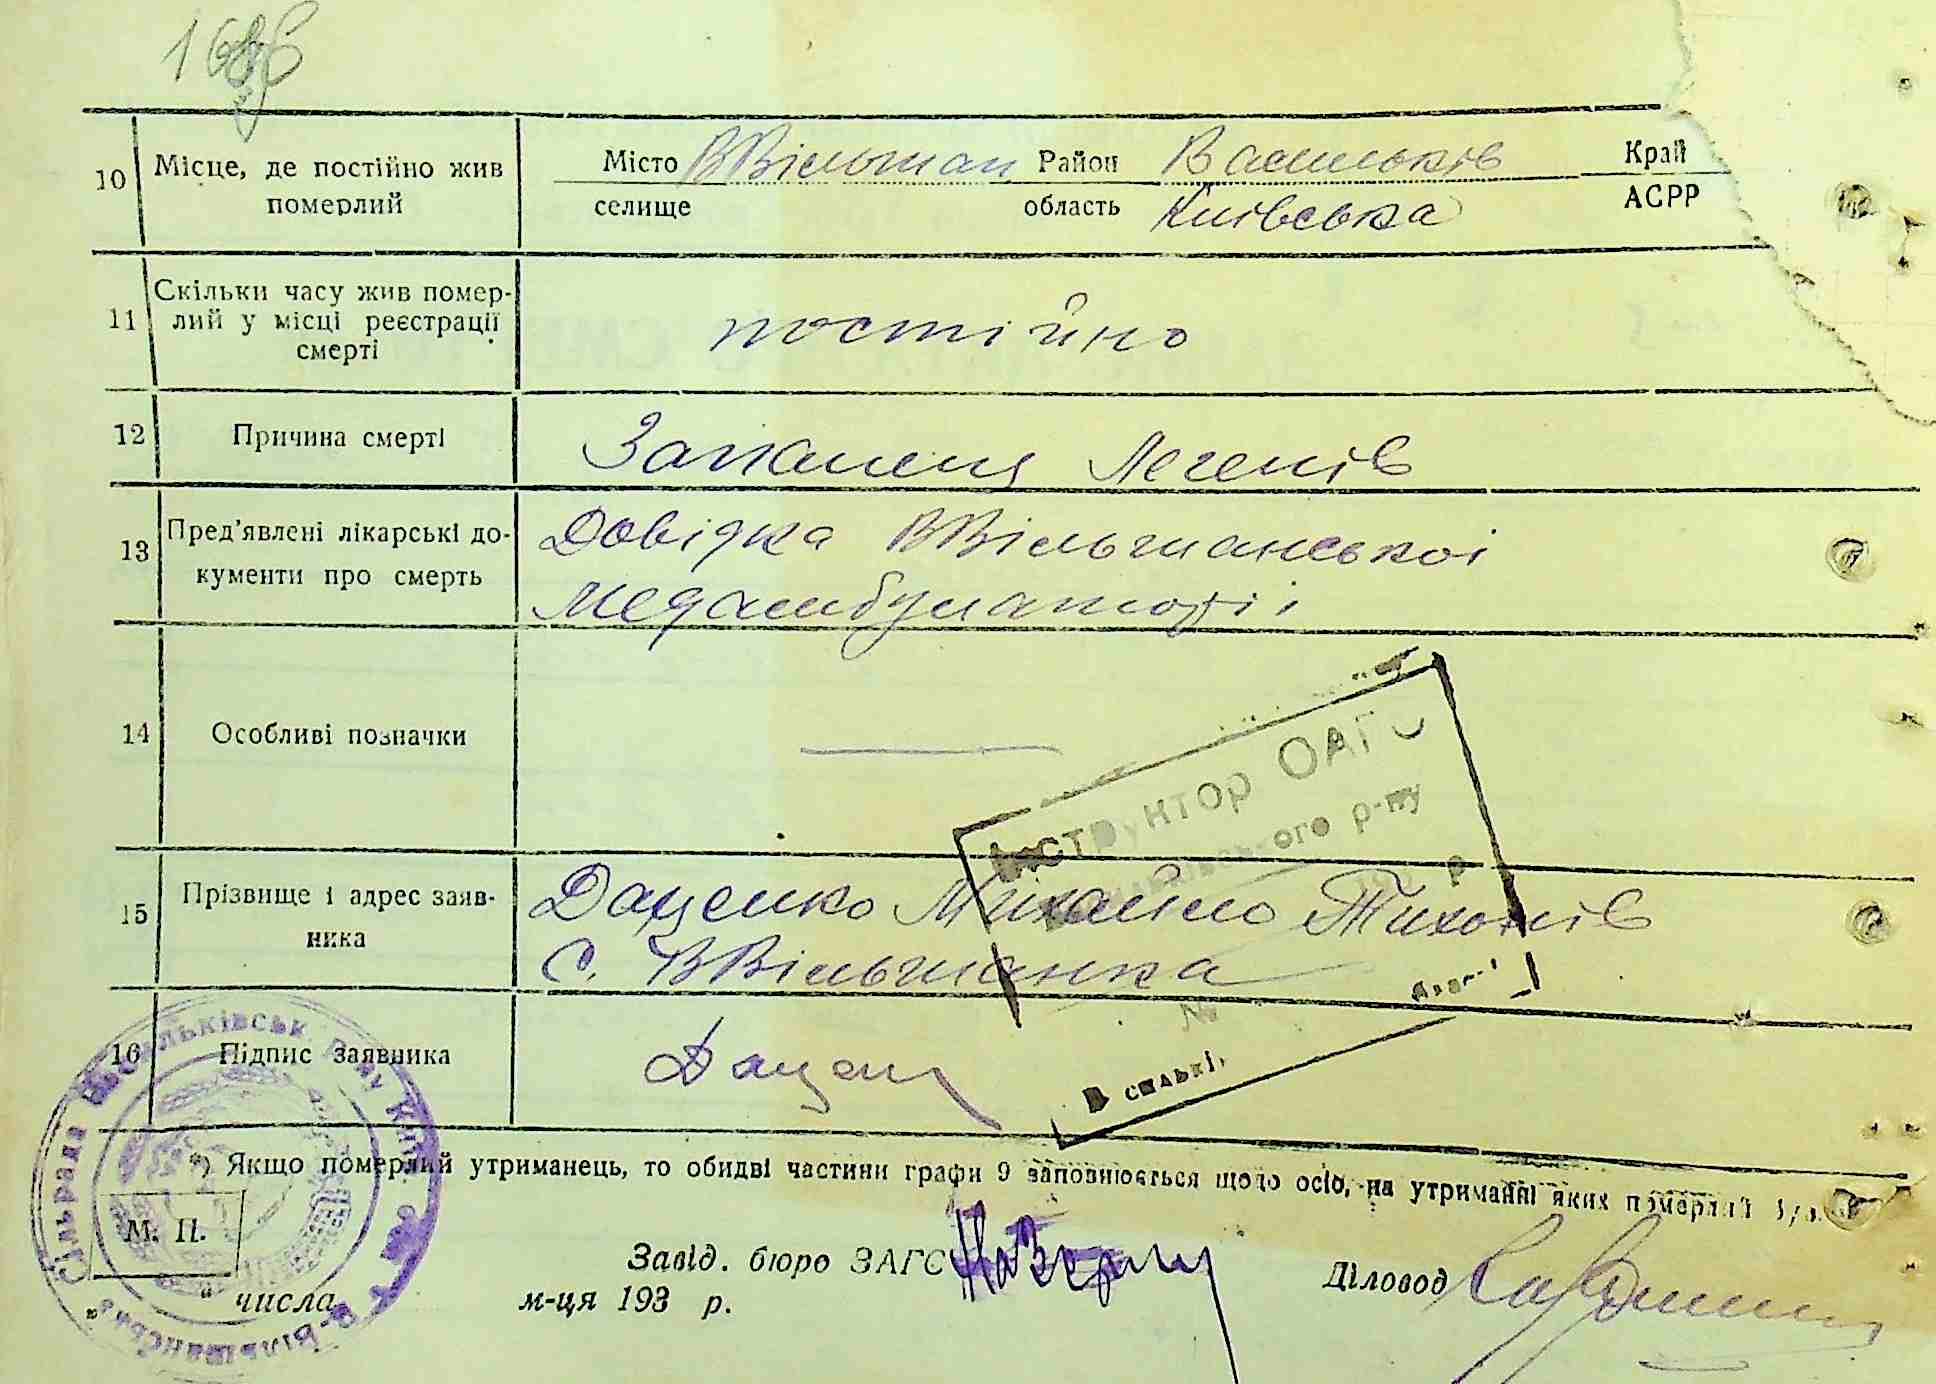 10 Місце, де постійно жив померлий
Місто ВВільшан Район Васильків Край
селище область Київська АСРР
11 Скільки часу жив помер-
лий у місці реєстрації
смерті
постійно
12 Причина смерті Запаленя Легенів
13 Пред'явлені лікарські до-
кументи про смерть
Довідка ВВільшанської
Медамбулаторії
14 Особливі позначки
15 Прізвище і адрес заяв-
ника
Даценко Михайло Тихонів
с. ВВільшанка
16 Підпис заявника Дацен
Інструктор ОАГС
р-ну
№
*) Якщо померлий утриманець, то обидві частини графи 9 заповнюється щодо осіб, на утриманні яких померлий
М. П.
Завід. бюро ЗАГС Діловод
" числа м-ця 193 р.
Сільрада Васильківськ. р-ну Київ.
В-Вільшанська